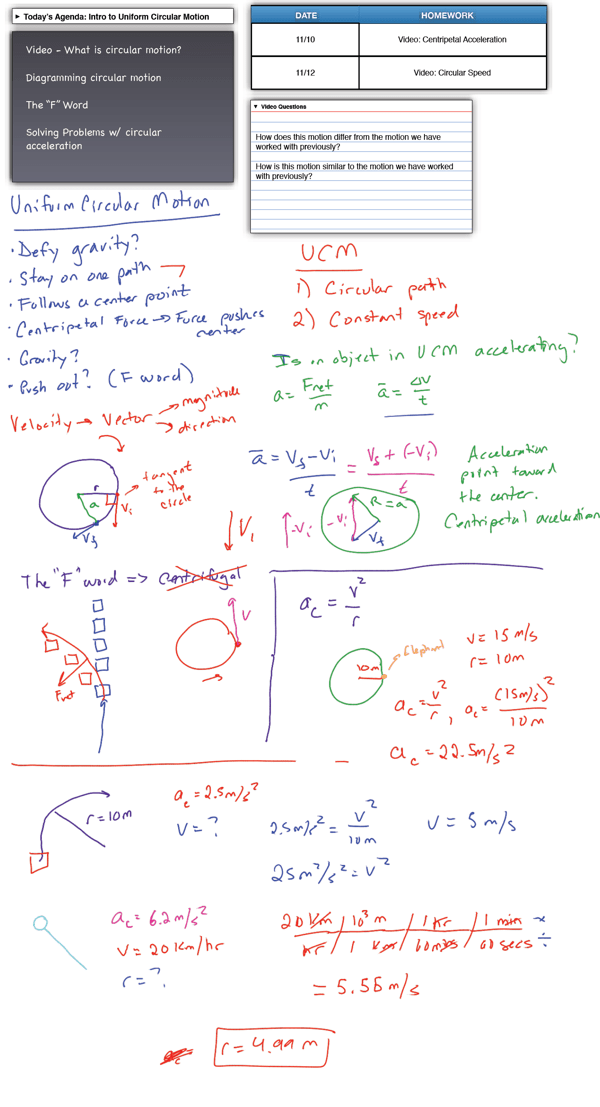 ► Today's Agenda: Intro to Uniform Circular Motion
Video - What is circular motion?
Diagramming circular motion
The "F" Word
Solving Problems w/ circular
acceleration
DATE HOMEWORK
11/10 Video: Centripetal Acceleration
11/12 Video: Circular Speed
▼ Video Questions
How does this motion differ from the motion we have
worked with previously?
How is this motion similar to the motion we have worked
with previously?
Uniform Circular Motion
• Defy gravity?
• Stay on one path
• Follows a center point
• Centripetal Force → Force pushes
center
• Gravity?
• Push out? (F word)
UCM
1) Circular path
2) Constant speed
Is an object in UCM accelerating?
a = Fnet/m
ā = Δv/t
Velocity → Vector → magnitude
→ direction
r
a
Vi
Vf
tangent
to the
circle
ā = Vf - Vi / t = Vf + (-Vi) / t
Vi
-Vi
-Vi
R = a
Vf
Acceleration
point toward
the center.
Centripetal acceleration
The "F" word => Centrifugal
Fnet
V
ac = v²/r
10m
Elephant
v = 15 m/s
r = 10m
ac = v²/r, ac = (15m/s)²/10m
ac = 22.5m/s²
r = 10m
ac = 2.5m/s²
v = ?
2.5m/s² = v²/10m
25m²/s² = v²
v = 5 m/s
ac = 6.2m/s²
v = 20 km/hr
r = ?
20 km | 10³ m | 1 hr | 1 min ×
hr | 1 km | 60 mins | 60 secs ÷
= 5.56 m/s
r = 4.99 m